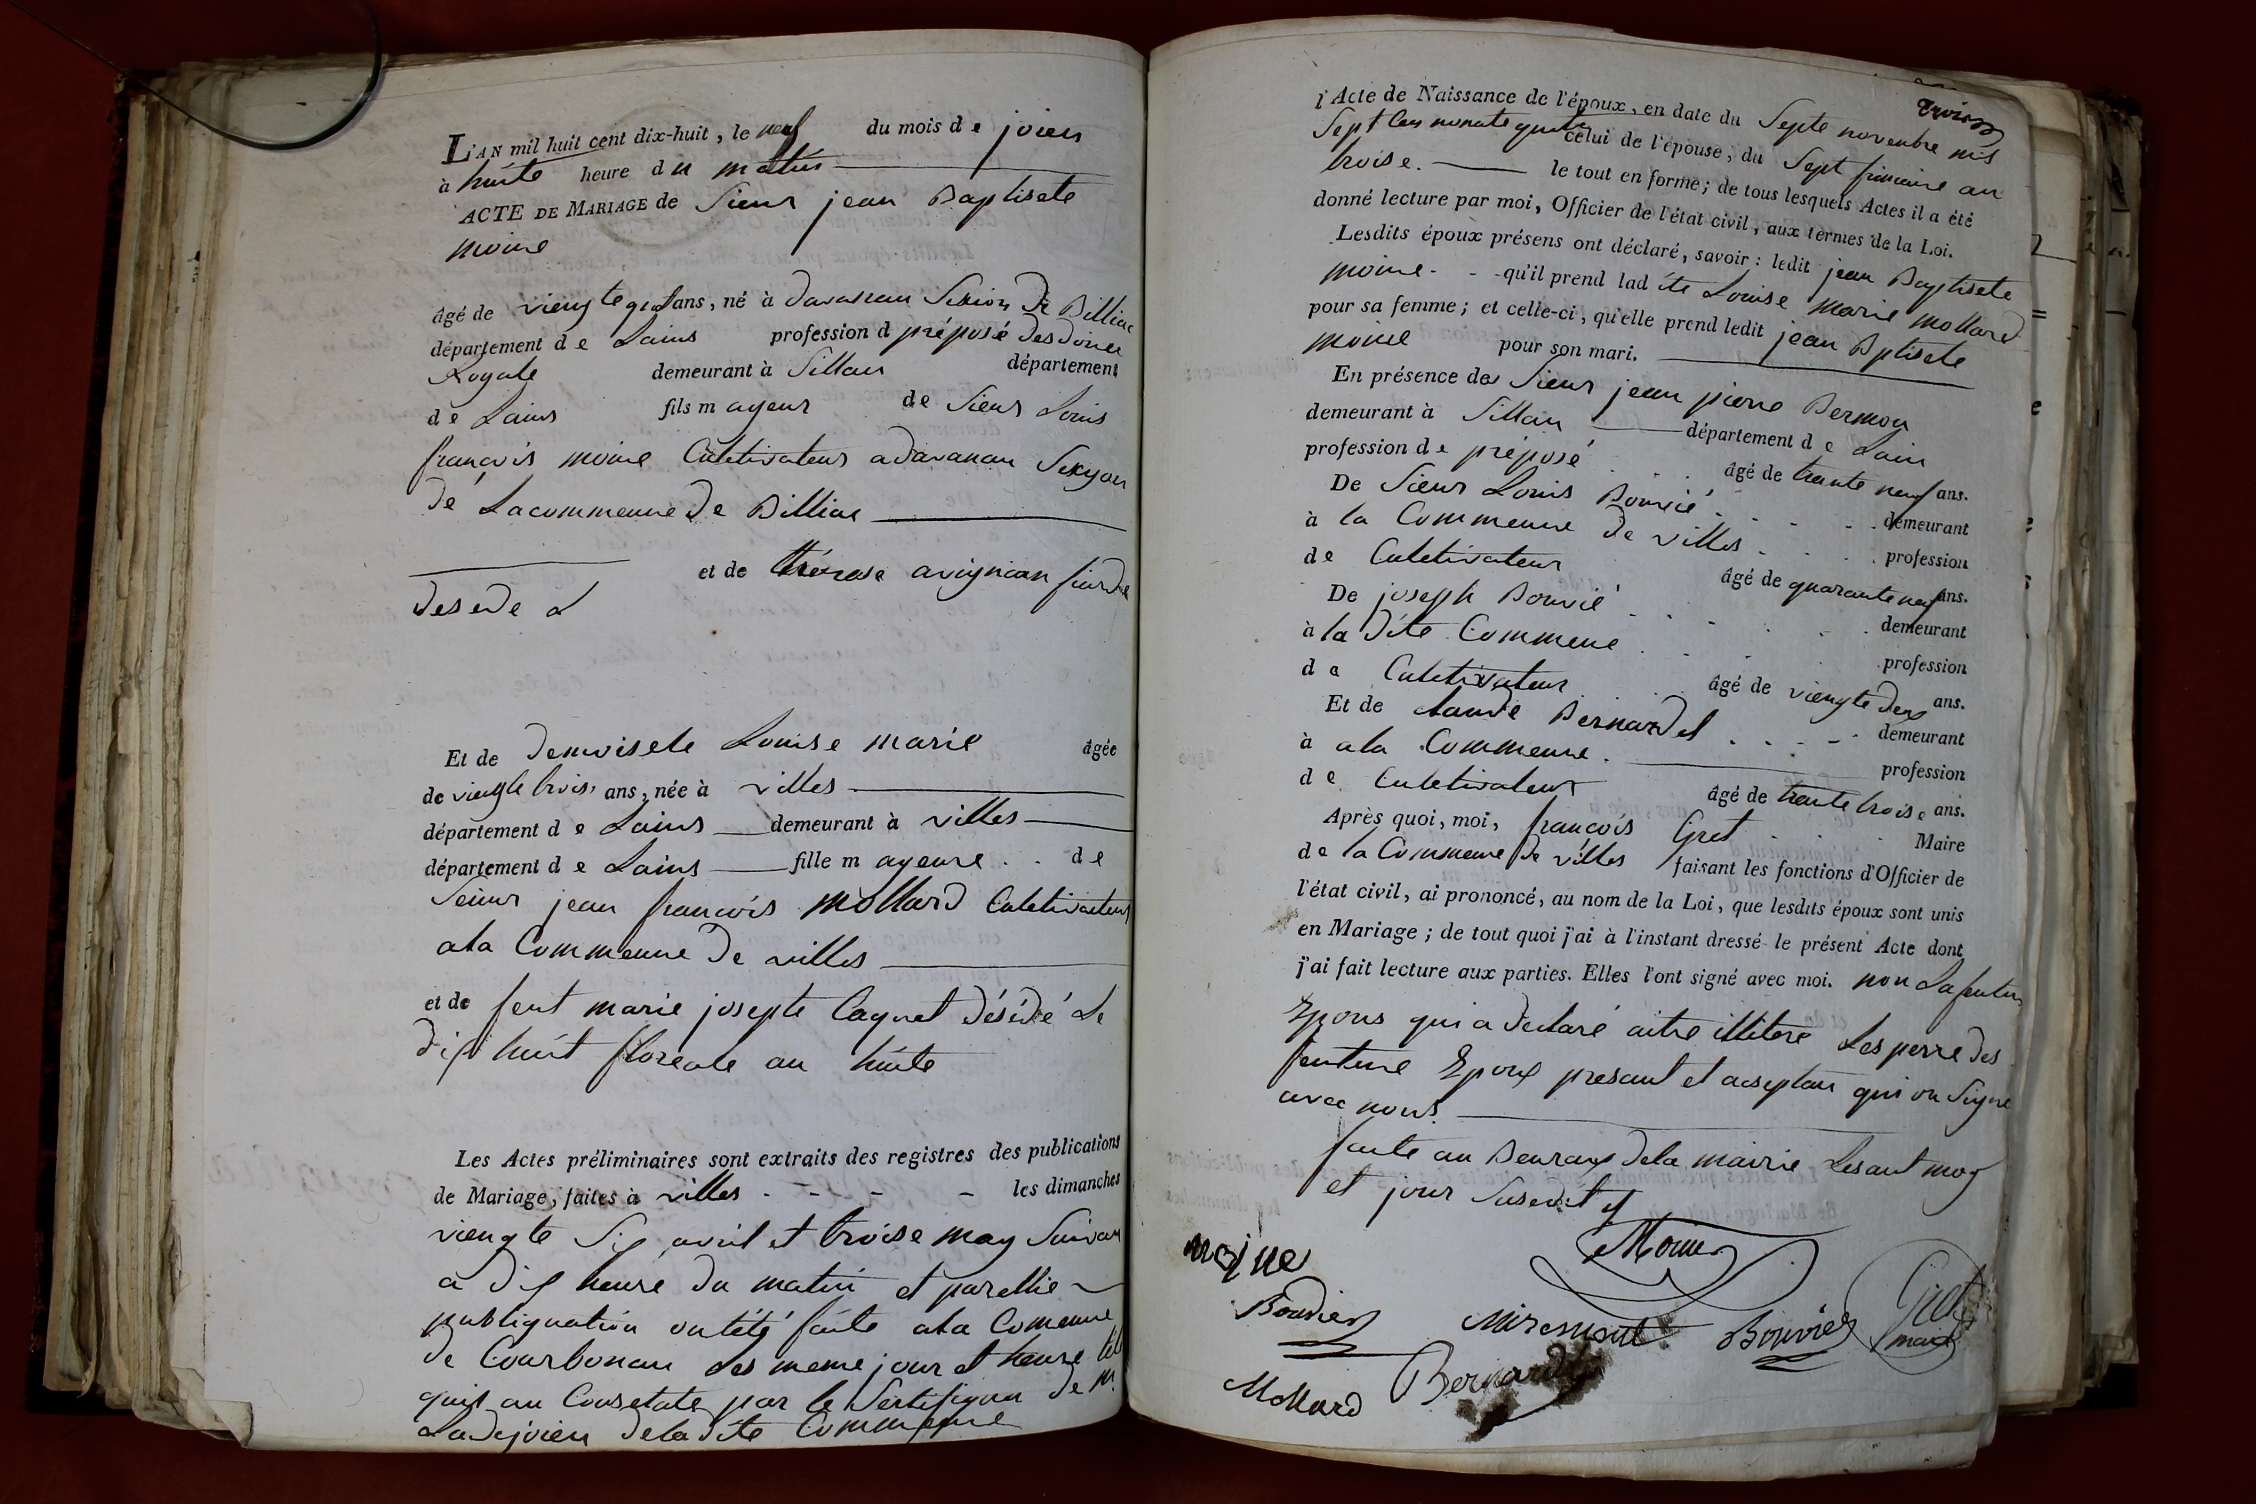 L'AN mil huit cent dix-huit, le neuf du mois de joien
à huite heure du matin
ACTE DE MARIAGE de Sieur jean Baptisete
moine
âgé de viengte ans, né à davanau Sexion de Billiac
département de Lains profession d préposé des doines
Royale demeurant à Sillan département
de Lains fils mayeur de Sieur Louis
francois moine Culetivateur a davanau Sexyon
de Lacommenne de Billiac
et de thérese avignian
desede
Et de demoisele Louise marie âgée
de viengte trois ans, née à villes
département de Lains demeurant à villes
département de Lains fille mayeure de
Seiur jean francois mollard Culetivateur
ala Commenne de villes
et de feut marie josepte Caqnet désédé Le
dix huit floreale an huite
Les Actes préliminaires sont extraits des registres des publications
de Mariage, faites à villes les dimanches
viengte Six avril et troise may Suivan
a dix heure du matin et parellie
publiquation ontété faite ala Comenne
de Courbonau Les meme jour et heure
quis au Consetate par le Sertifiqua de M.
Ladejoien dela dite Commenne
troise
l'Acte de Naissance de l'époux, en date du Septe novembre mis
Sept Cen nonate quatre celui de l'épouse, du Sept frimaire an
troise. le tout en forme; de tous lesquels Actes il a été
donné lecture par moi, Officier de l'état civil, aux termes de la Loi.
Lesdits époux présens ont déclaré, savoir: ledit jean Baptisete
moine - - qu'il prend ladite Louise marie mollard
pour sa femme; et celle-ci, qu'elle prend ledit jean Bptisete
moine pour son mari.
En présence des Sieur jean pierre Bermon
demeurant à Sillan département de Lain
profession de préposé âgé de trante neuf ans.
De Sieur Louis Bouvié demeurant
à la Commenne de villes profession
de Culetivateur âgé de quarante neuf ans.
De joseph Bouvié demeurant
à la dite Commene profession
de Culetivateur âgé de viengte deux ans.
Et de claude Bernardel demeurant
à ala Commenne. profession
de Culetivateur âgé de trente troise ans.
Après quoi, moi, francois Gret Maire
de la Commenne de villes faisant les fonctions d'Officier de
l'état civil, ai prononcé, au nom de la Loi, que lesdits époux sont unis
en Mariage; de tout quoi j'ai à l'instant dressé le présent Acte dont
j'ai fait lecture aux parties. Elles l'ont signé avec moi. non Lafeuture
Epous qui a declaré aitre illitere Les perre des
feuture Epoux presant et acseptan qui on Signe
avec nous
faite au Beuraux dela mairie Lesant moy
et jour Susedit
Moine
moine
Bouvier
Miremont
Bouvier
Gret
maire
Mollard
Bernardel